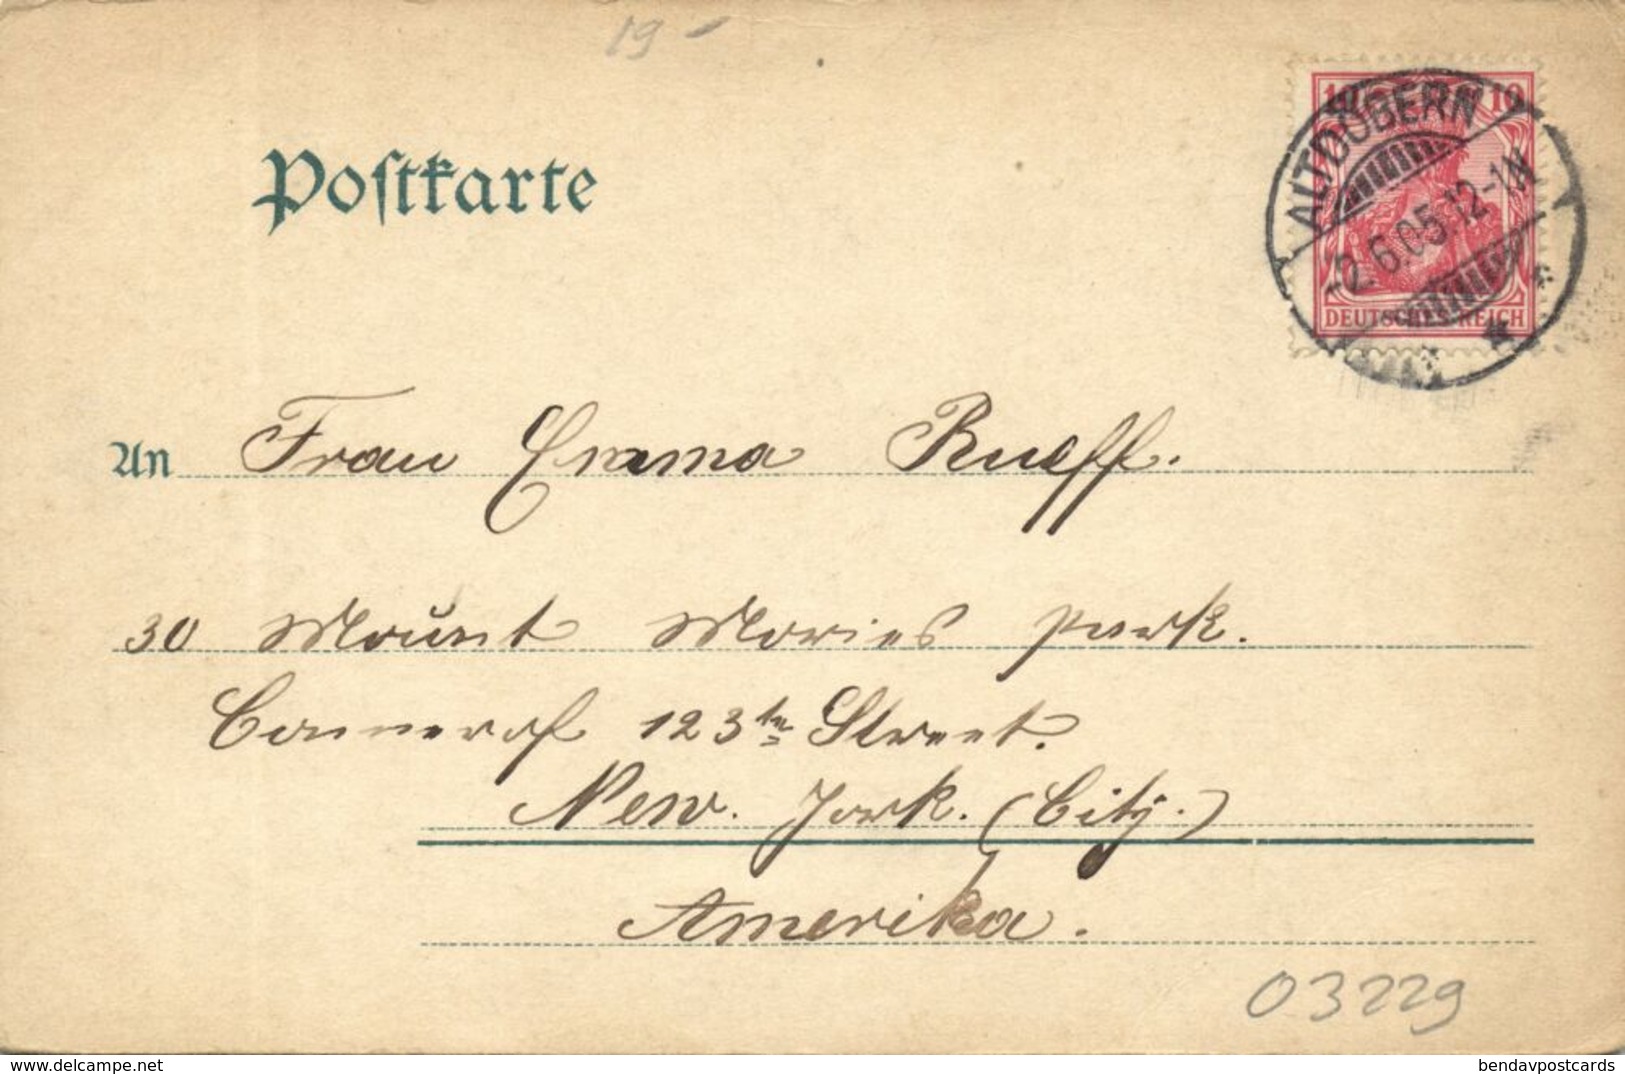 19 -
Postkarte
10 10
ALTDÖBERN
-2.6.05.12-1N
DEUTSCHES REICH
An Frau Emma Rueff.
30 Mount Mories Park.
Cornerof 123th Street.
New. York. (City.)
Amerika.
03229
www.delcampe.net
bendavpostcards